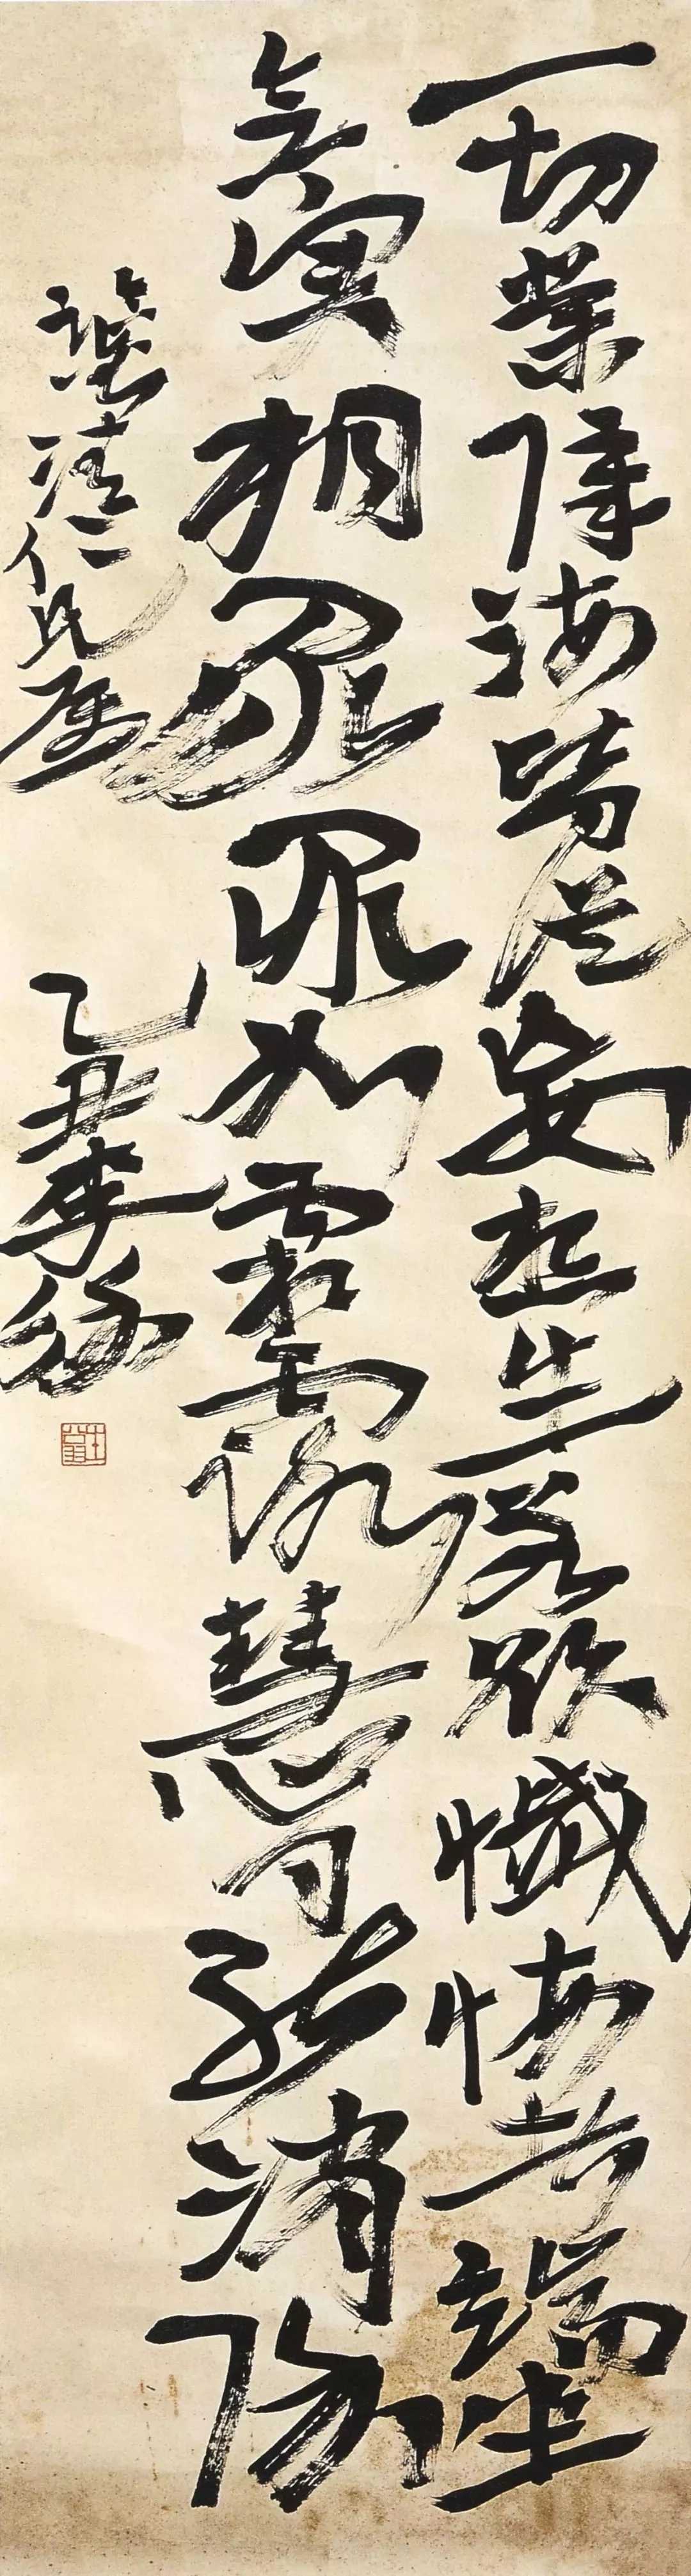 一切業障海皆從妄想生若欲懺悔者端坐
念實相眾罪如霜露慧日能消除
清仁兄属 乙丑李徐